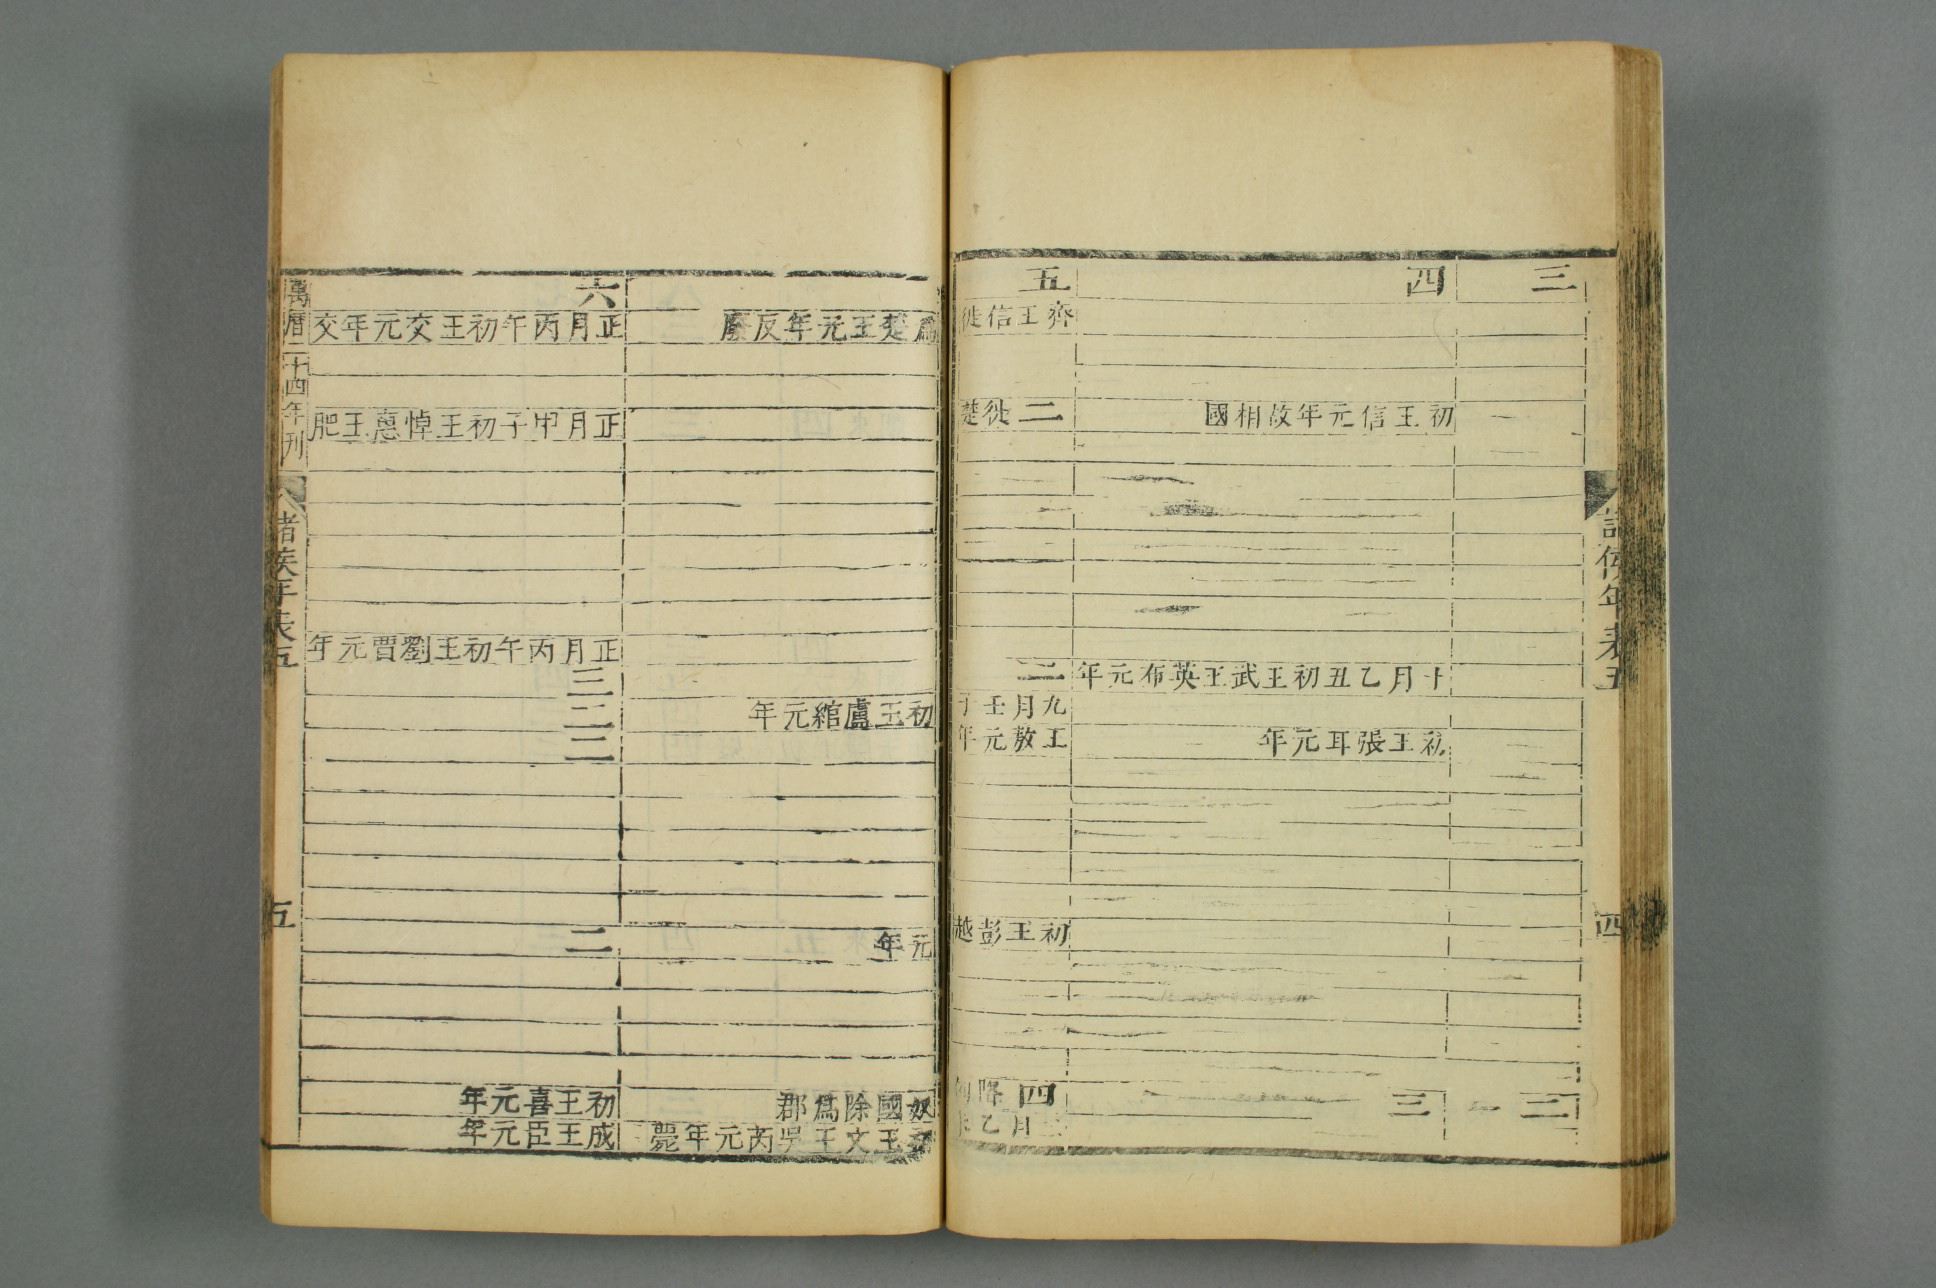 三
四
五
齊王信徙
初王信元年故相國
二徙楚
十月乙丑初王武王英布元年
二
九月壬子
初王張耳元年
王敖元年
初王彭越
二
三
四降匈
月乙
諸侯年表五
四
爲楚王元年反廢
初王盧綰元年
元年
奴國除爲郡
王文王吳芮元年薨
六
正月丙午初王交元年交
正月甲子初王悼惠王肥
正月丙午初王劉賈元年
三
二
二
二
初王喜元年
成王臣元年
萬曆二十四年刊
諸侯年表五
五